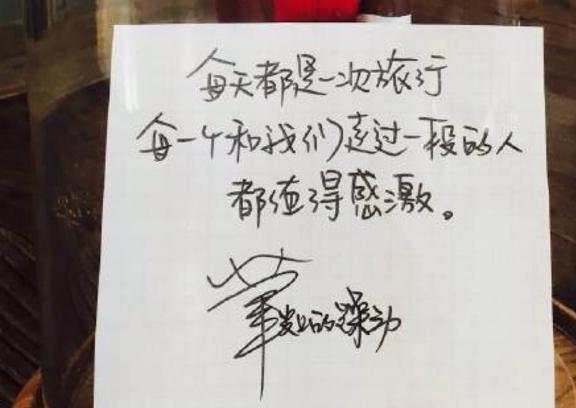 每天都是一次旅行
每一个和我们走过一段的人
都值得感激。
的躁动